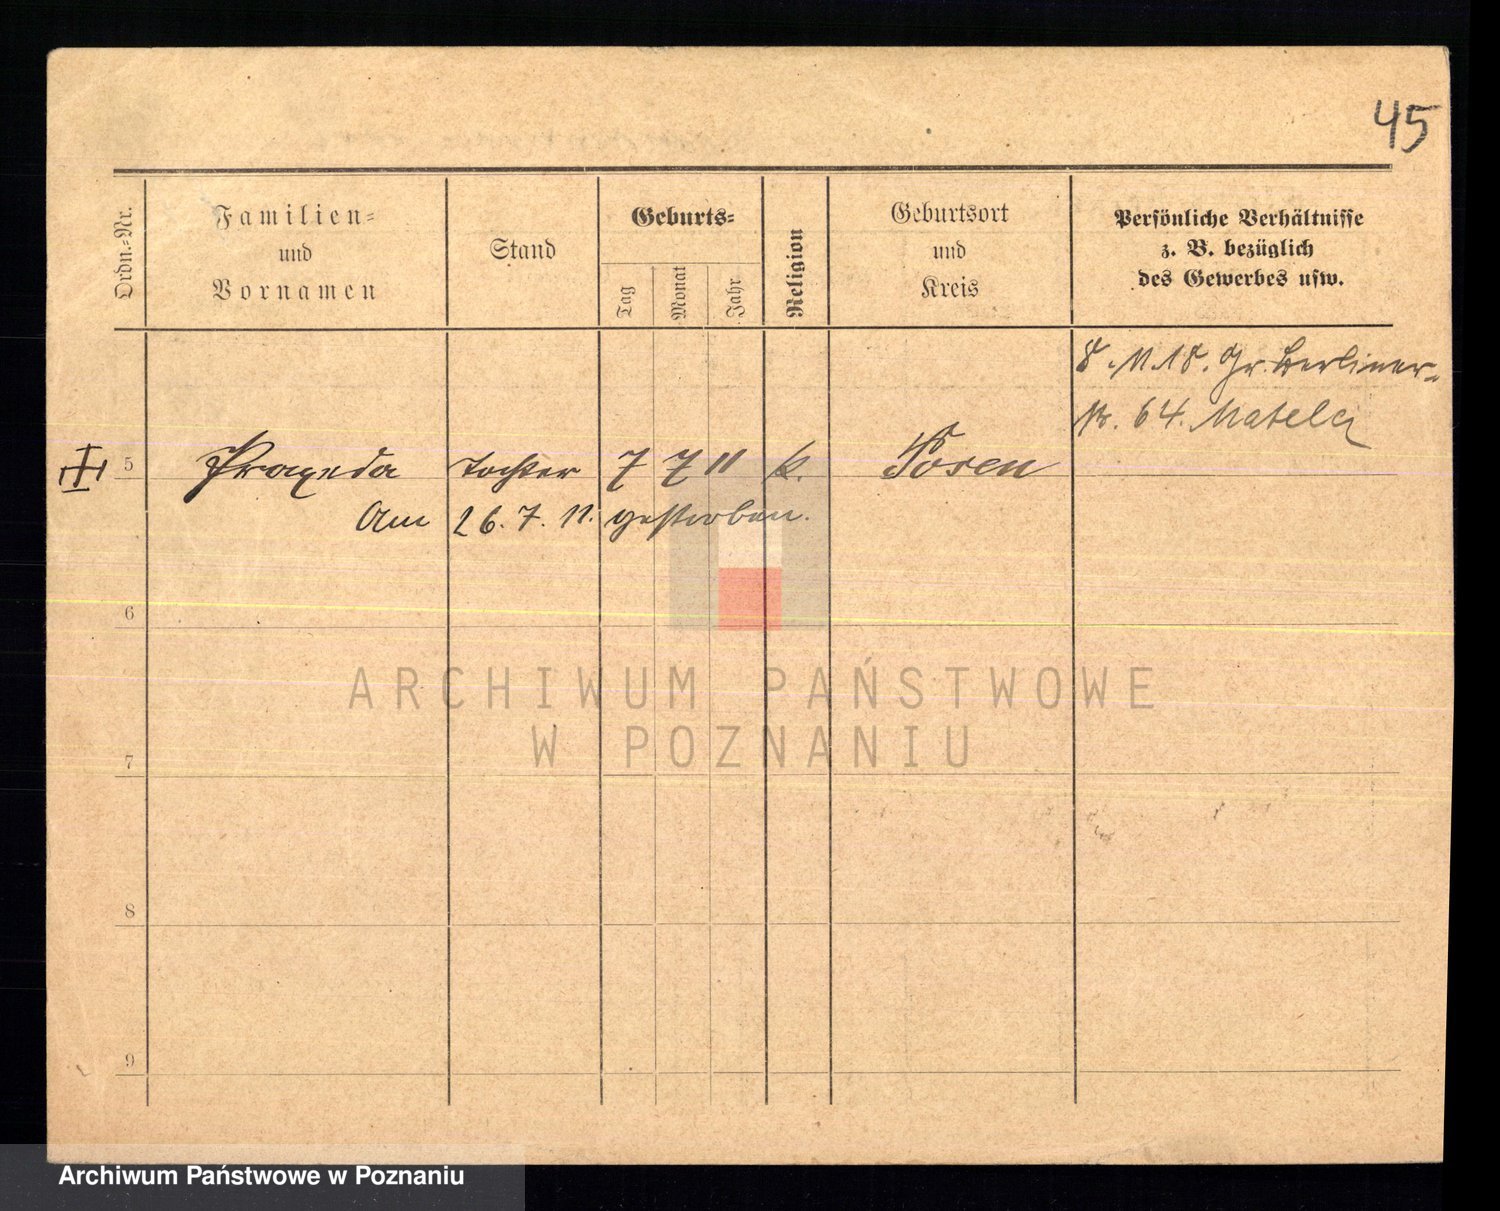 45
Ordn.-Nr.
Familien-
und
Vornamen
Stand
Geburts-
Tag
Monat
Jahr
Religion
Geburtsort
und
Kreis
Persönliche Verhältnisse
z. B. bezüglich
des Gewerbes usw.
8. 11. 18. Gr. Berliner-
str. 64. Matela
5 Praxeda Tochter 7 7 11 k. Posen
Am 26. 7. 11. gestorben.
6
ARCHIWUM PAŃSTWOWE
W POZNANIU
7
8
9
Archiwum Państwowe w Poznaniu